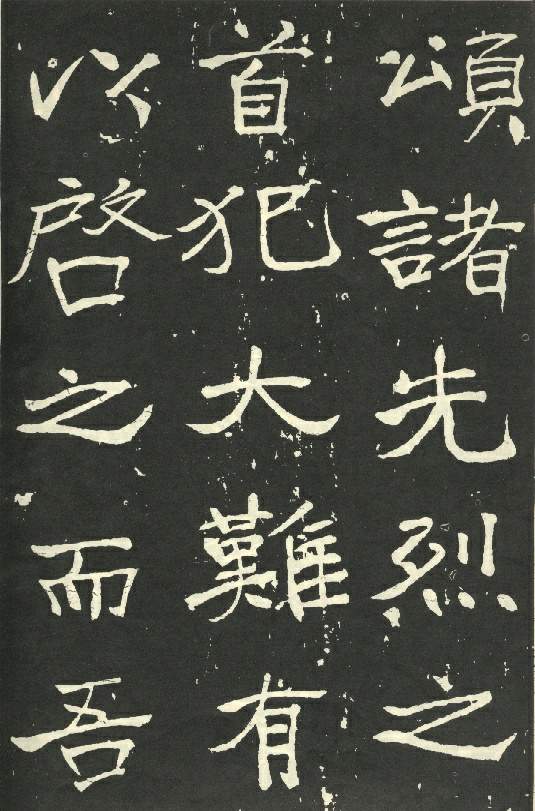 頌諸先烈之
首犯大難有
以啓之而吾